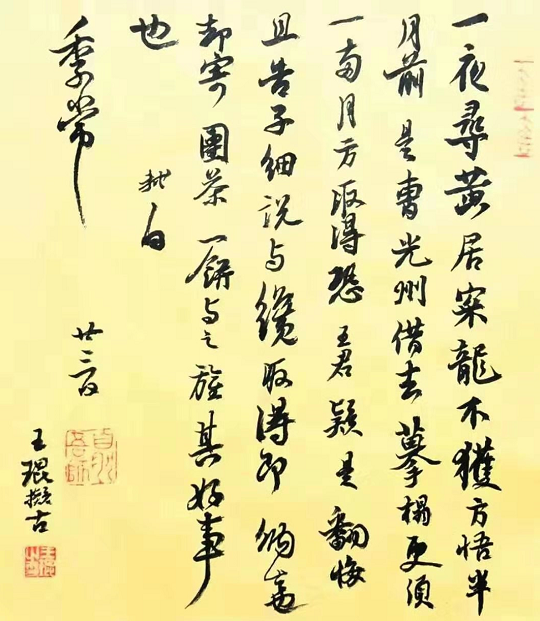 一夜尋黄居寀龍不獲方悟半
月前是曹光州借去摹榻更須
一兩月方取得恐王君疑是翻悔
且告子細説与纔取得即納去
却寄團茶一餅与之旌其好事
也 軾白
季常
廿三日
王琨擬古